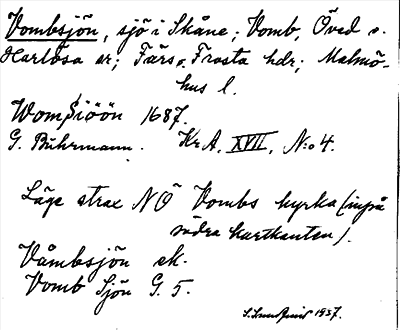 Vombsjön, sjö i Skåne, Vomb, Öved o.
Harlösa sr; Färs o. Frosta hdr; Malmö-
hus l.
Womsiöön 1687.
G. Buhrmann. KrA, XVII, N:o 4.
Läge strax NÖ Vombs kyrka (inpå
södra kartkanten).
Våmbsjön ek.
Vomb Sjön G. 5.
1937.